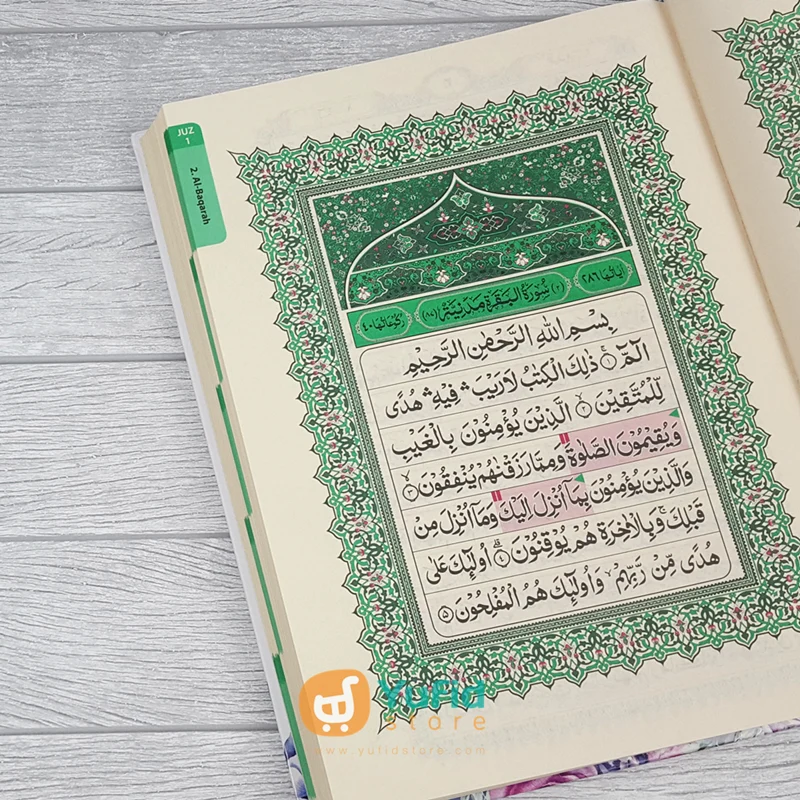 JUZ
1
2. Al-Baqarah
اٰيَاتُهَا ٢٨٦ (٢) سُوْرَةُ الْبَقَرَةِ مَدَنِيَّةٌ (٨٧) رُكُوْعَاتُهَا ٤٠
بِسْمِ اللّٰهِ الرَّحْمٰنِ الرَّحِيْمِ
الۤمّۤ ۚ ١ ذٰلِكَ الْكِتٰبُ لَا رَيْبَ ۛ فِيْهِ ۛ هُدًى
لِّلْمُتَّقِيْنَ ۙ ٢ الَّذِيْنَ يُؤْمِنُوْنَ بِالْغَيْبِ
وَيُقِيْمُوْنَ الصَّلٰوةَ وَمِمَّا رَزَقْنٰهُمْ يُنْفِقُوْنَ ۙ ٣
وَالَّذِيْنَ يُؤْمِنُوْنَ بِمَآ اُنْزِلَ اِلَيْكَ وَمَآ اُنْزِلَ مِنْ
قَبْلِكَ ۚ وَبِالْاٰخِرَةِ هُمْ يُوْقِنُوْنَ ۗ ٤ اُولٰۤىِٕكَ عَلٰى
هُدًى مِّنْ رَّبِّهِمْ ۙ وَاُولٰۤىِٕكَ هُمُ الْمُفْلِحُوْنَ ٥
Yufid
store
www.yufidstore.com